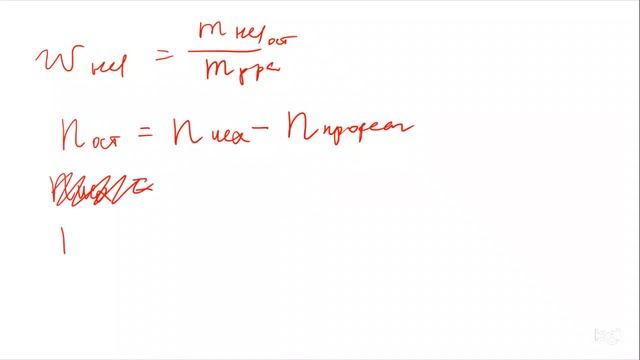 w HCl = m HCl ост / m р-ра
n ост = n исх - n прореаг